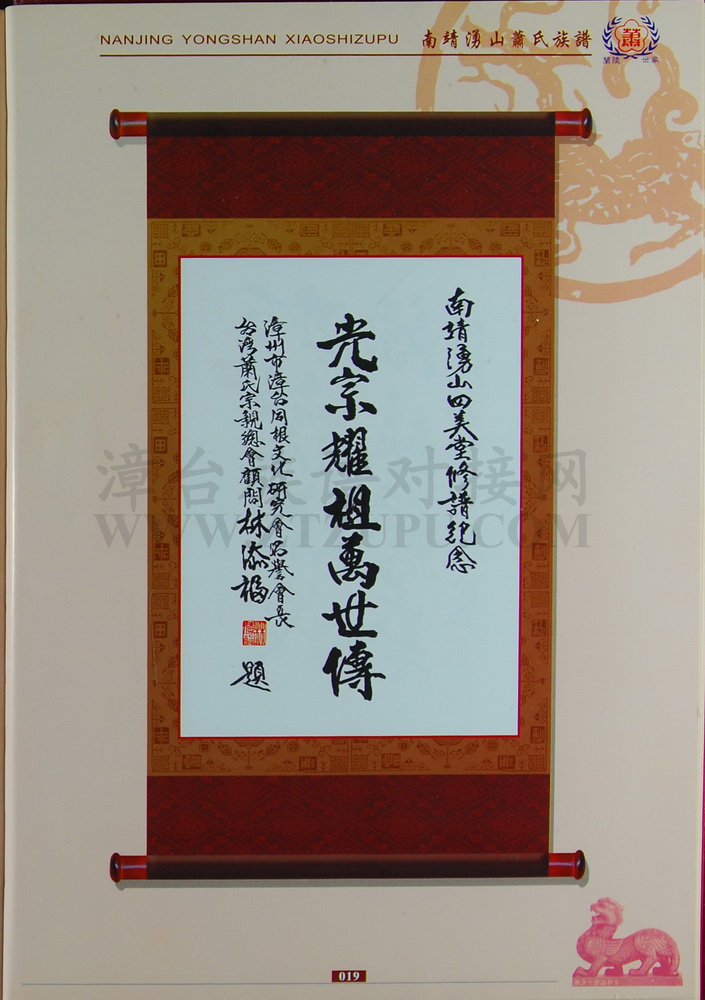 NANJING YONGSHAN XIAOSHIZUPU 南靖湧山蕭氏族譜
蕭
蘭陵 世家
南靖湧山四美堂修譜紀念
光宗耀祖萬世傳
漳州市漳台同根文化研究會名譽會長
台湾蕭氏宗親總會顧問林添福
題
漳台族谱对接网
WWW.ZTZUPU.COM
019